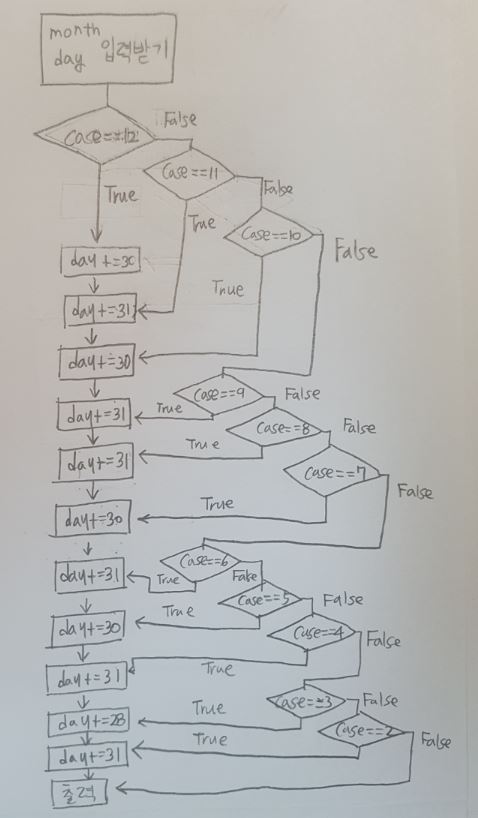 month
day 입력받기
Case==12
False
True
Case==11
False
True
Case==10
False
True
day+=30
day+=31
day+=30
Case==9
False
True
day+=31
Case==8
False
True
day+=31
Case==7
False
True
day+=30
Case==6
False
True
day+=31
Case==5
False
True
day+=30
Case==4
False
True
day+=31
Case==3
False
True
day+=28
Case==2
False
True
day+=31
출력